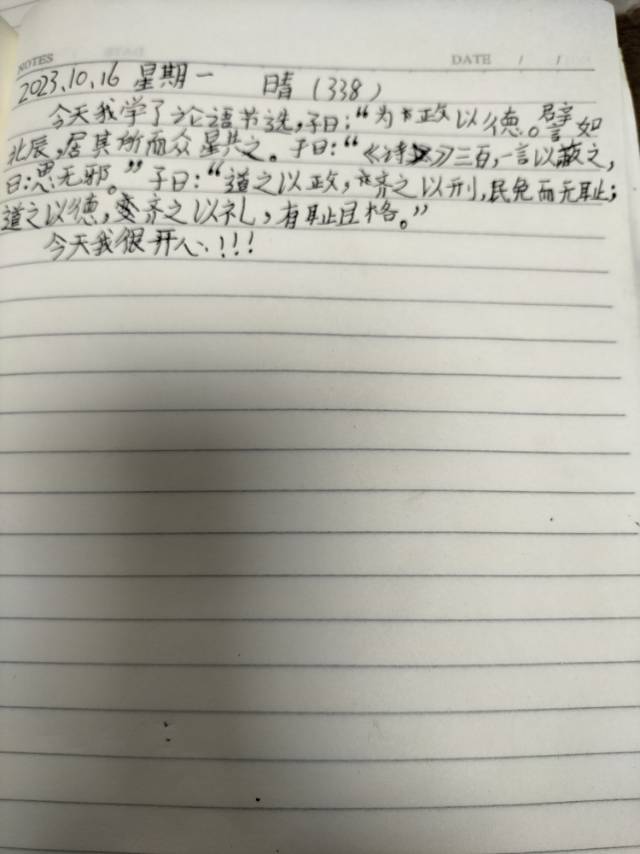 NOTES DATE / /
2023.10.16 星期一 晴（338）
今天我学了论语节选,子曰:“为政以德。譬如
北辰,居其所而众星共之。子曰:“《诗》三百,一言以蔽之,
曰:思无邪。”子曰:“道之以政,齐之以刑,民免而无耻;
道之以德,齐之以礼,有耻且格。”
今天我很开心!!!